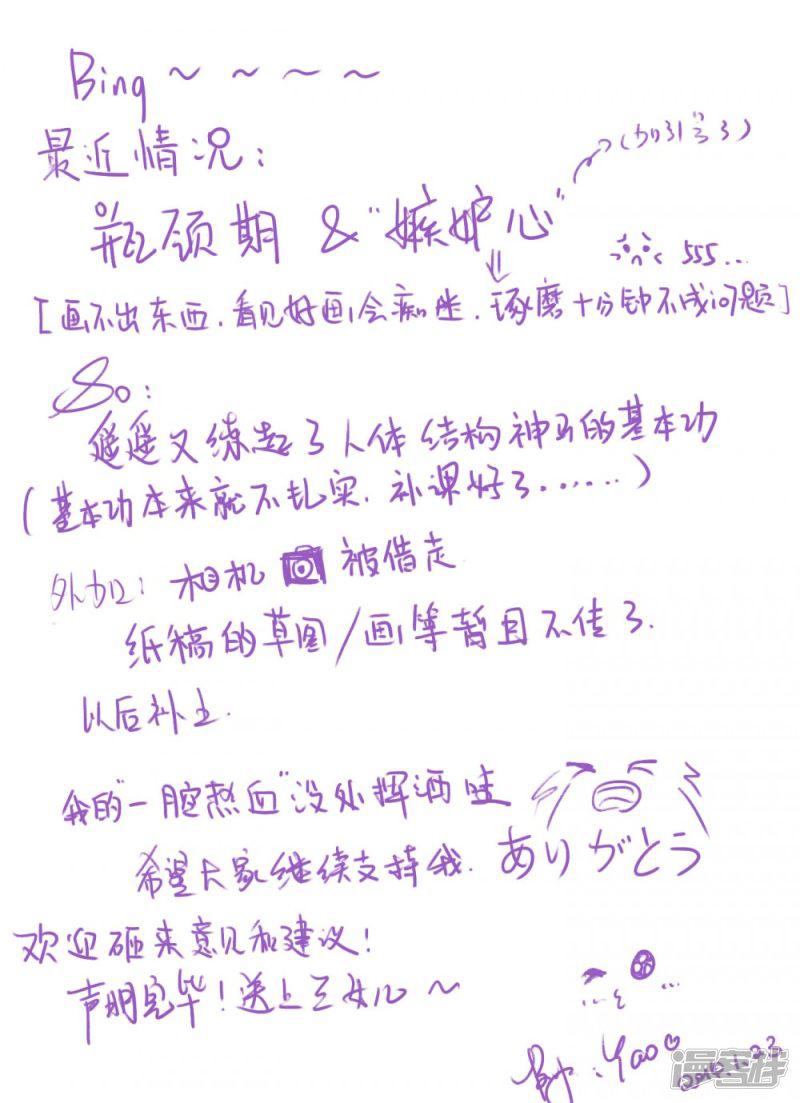 Bing~~~~
最近情况:
瓶颈期 & "嫉妒心" (加引号了)
555...
[画不出东西.看见好画会痴坐.琢磨十分钟不成问题]
So:
遥遥又练起了人体结构神马的基本功
(基本功本来就不扎实.补课好了......)
外加:相机 被借走
纸稿的草图/画等暂且不佳了.
以后补上.
我的"一腔热血"没处挥洒哇
希望大家继续支持我. ありがとう
欢迎砸来意见和建议!
声明完毕!送上三女儿~
:Yao
漫客栈